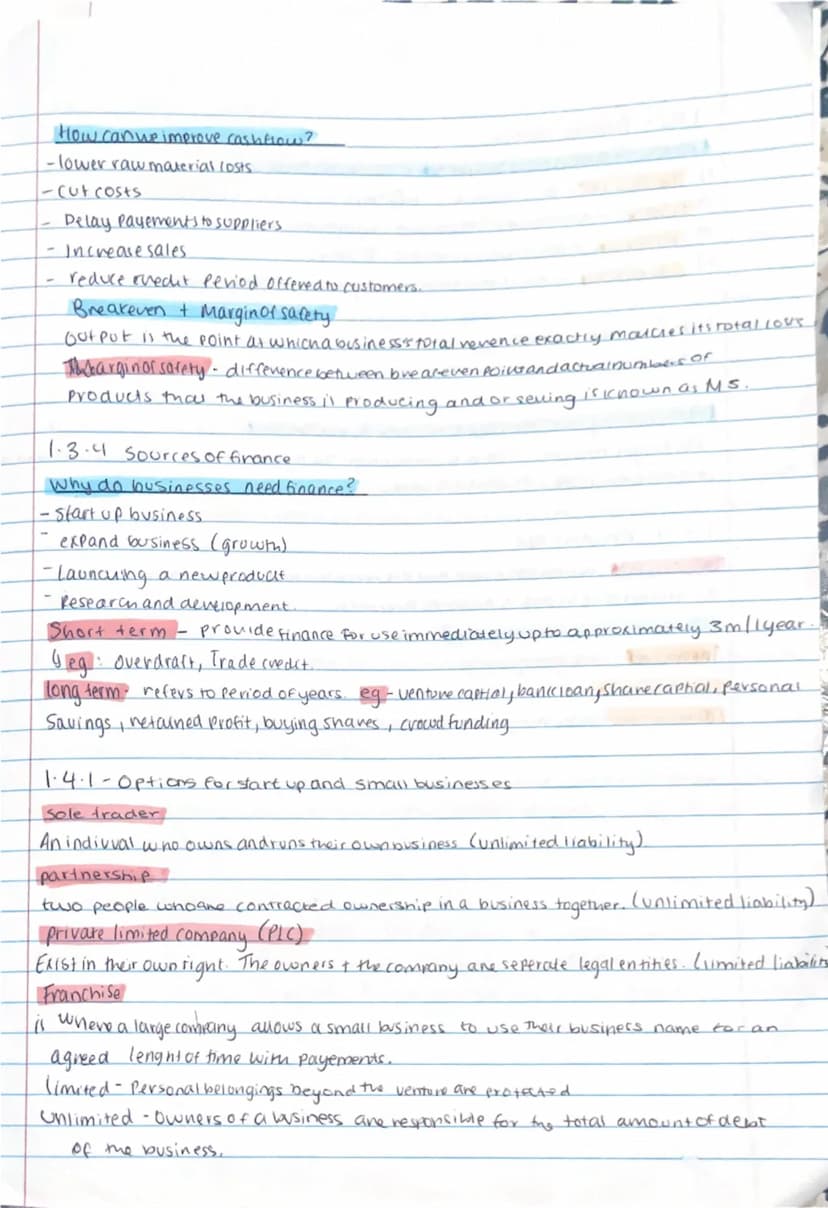 How can we improve cashflow?
- lower raw material costs
- cut costs
- Delay payements to suppliers
- Increase sales
- reduce credit period offered to customers.
Breakeven + Margin of safety
output is the point at which a business's total revence exactly matches its total costs
Margin of safety - difference between breakeven point and actual numbers of
products that the business is producing and or selling is known as MS.
1.3.4 Sources of finance
Why do businesses need finance?
- Start up business
- expand business (growth)
- Launching a new product
- Research and development.
Short term - provide finance for use immediately up to approximately 3m/1year.
eg: overdraft, Trade credit.
long term - refers to period of years. eg - venture captial, bank loan, share captial, personal
Savings, retained profit, buying shares, crowd funding
1.4.1 - Options for start up and small businesses
Sole trader
An indivual who owns and runs their own business (unlimited liability)
partnership
two people who are contracted ownership in a business together. (unlimited liability)
private limited company (PLC)
Exist in their own right. The owners + the company are seperate legal entities. (limited liabilit
Franchise
is where a large company allows a small business to use their business name for an
agreed lenght of time with payements.
limited - Personal belongings beyond the venture are protected
Unlimited - Owners of a business are responsible for the total amount of debt
of the business.